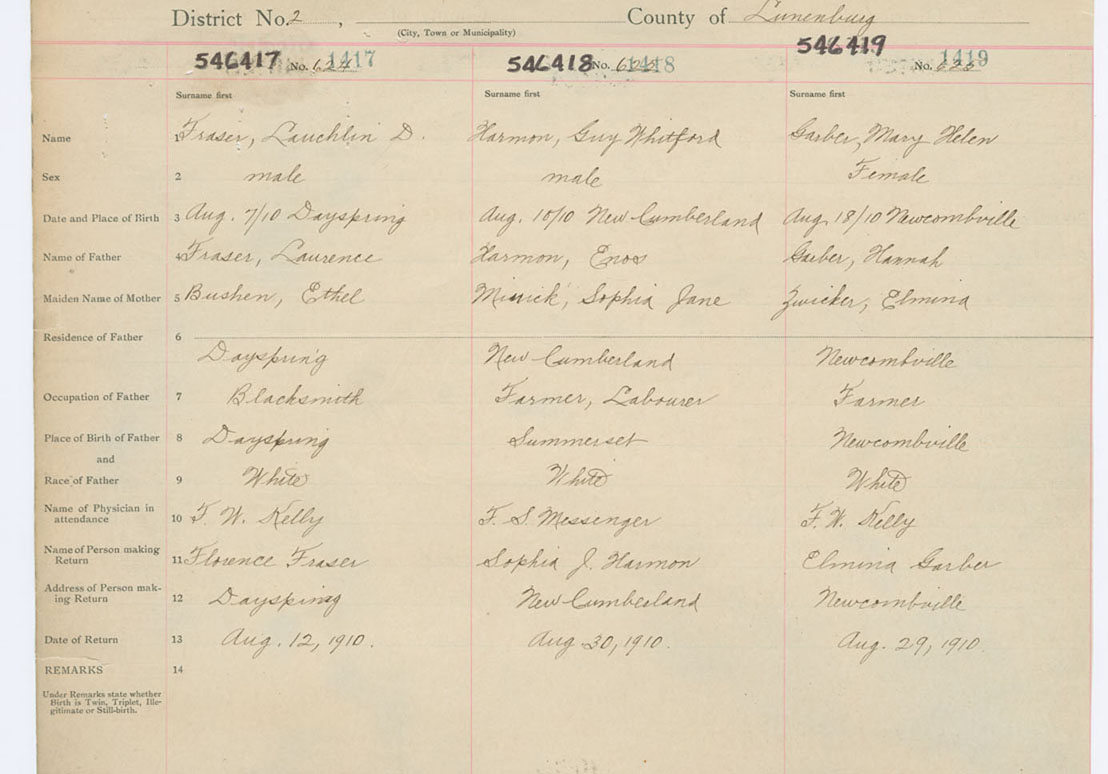 District No. 2 , County of Lunenburg
(City, Town or Municipality)
546417 No. 1417 546418 No. 1418 546419 No. 1419
Surname first Surname first Surname first
Name 1 Fraser, Lauchlin D. Harmon, Guy Whitford Garber, Mary Helen
Sex 2 male male Female
Date and Place of Birth 3 Aug. 7/10 Dayspring Aug. 10/10 New Cumberland Aug 18/10 Newcombville
Name of Father 4 Fraser, Laurence Harmon, Enos Garber, Hannah
Maiden Name of Mother 5 Bushen, Ethel Minick, Sophia Jane Zwicker, Elmina
Residence of Father 6
Dayspring New Cumberland Newcombville
Occupation of Father 7 Blacksmith Farmer, Labourer Farmer
Place of Birth of Father 8 Dayspring Summerset Newcombville
and
Race of Father 9 White White White
Name of Physician in
attendance 10 F. W. Kelly F. S. Messenger F. W. Kelly
Name of Person making
Return 11 Florence Fraser Sophia J. Harmon Elmina Garber
Address of Person mak-
ing Return 12 Dayspring New Cumberland Newcombville
Date of Return 13 Aug. 12, 1910. Aug 30, 1910. Aug. 29, 1910.
REMARKS 14
Under Remarks state whether
Birth is Twin, Triplet, Ille-
gitimate or Still-birth.